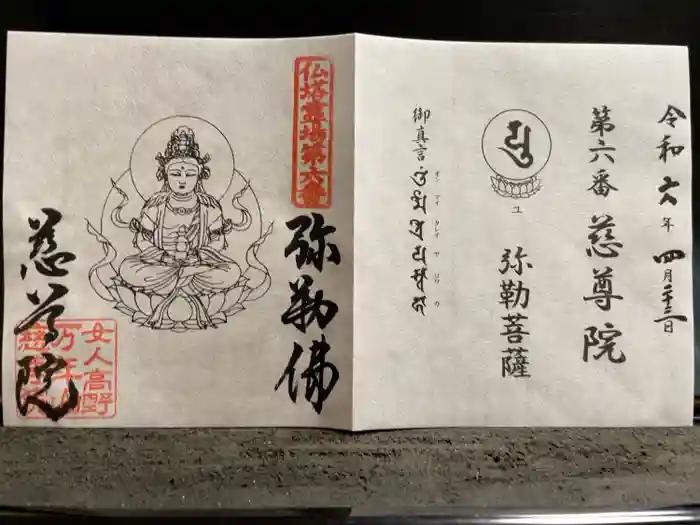 令和六年四月二十三日
第六番 慈尊院
ユ
弥勒菩薩
御真言
仏塔霊場第六番
弥勒佛
慈尊院
女人高野
万年山
慈尊院